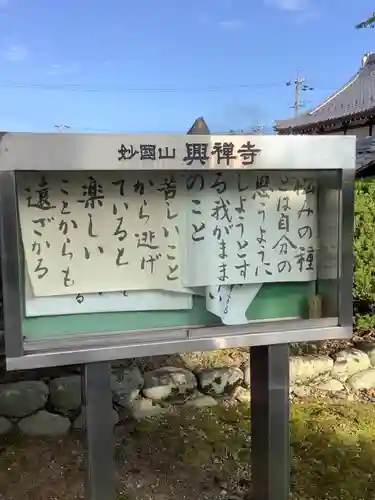 妙國山 興禅寺
悩みの種
とは自分の
思うように
しようとす
る我がまま
のこと
苦しいこと
から逃げ
ていると
楽しい
ことからも
遠ざかる